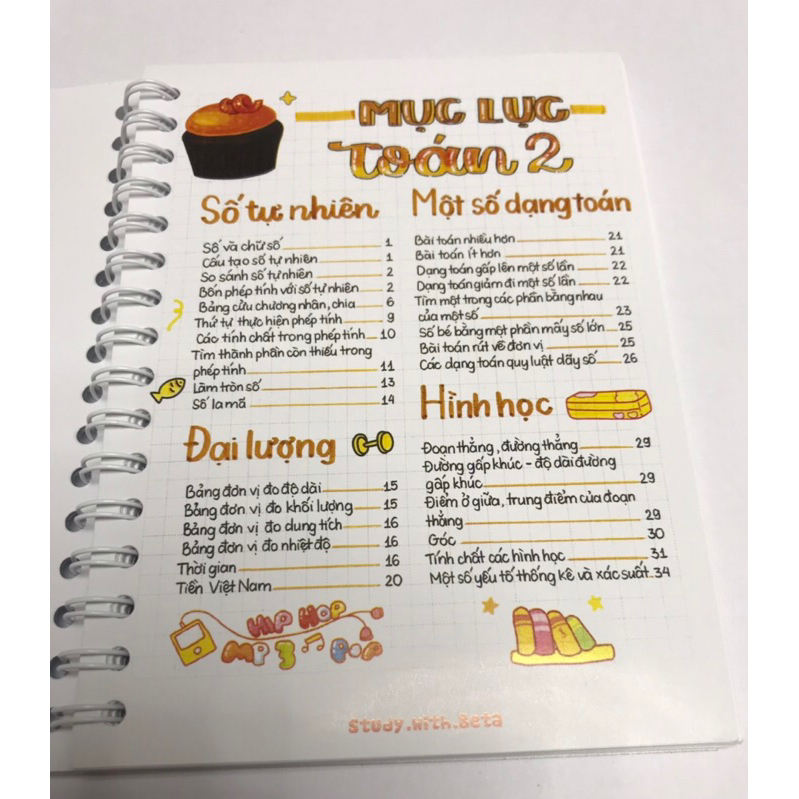 MỤC LỤC
Toán 2
Số tự nhiên
Số và chữ số 1
Cấu tạo số tự nhiên 1
So sánh số tự nhiên 2
Bốn phép tính với số tự nhiên 2
Bảng cửu chương nhân, chia 6
Thứ tự thực hiện phép tính 9
Các tính chất trong phép tính 10
Tìm thành phần còn thiếu trong
phép tính 11
Làm tròn số 13
Số la mã 14
Đại lượng
Bảng đơn vị đo độ dài 15
Bảng đơn vị đo khối lượng 15
Bảng đơn vị đo dung tích 16
Bảng đơn vị đo nhiệt độ 16
Thời gian 16
Tiền Việt Nam 20
HIP HOP
MP3 POP
Một số dạng toán
Bài toán nhiều hơn 21
Bài toán ít hơn 21
Dạng toán gấp lên một số lần 22
Dạng toán giảm đi một số lần 22
Tìm một trong các phần bằng nhau
của một số 23
Số bé bằng một phần mấy số lớn 25
Bài toán rút về đơn vị 25
Các dạng toán quy luật dãy số 26
Hình học
Đoạn thẳng, đường thẳng 29
Đường gấp khúc - độ dài đường
gấp khúc 29
Điểm ở giữa, trung điểm của đoạn
thẳng 29
Góc 30
Tính chất các hình học 31
Một số yếu tố thống kê và xác suất 34
Study.with.Beta